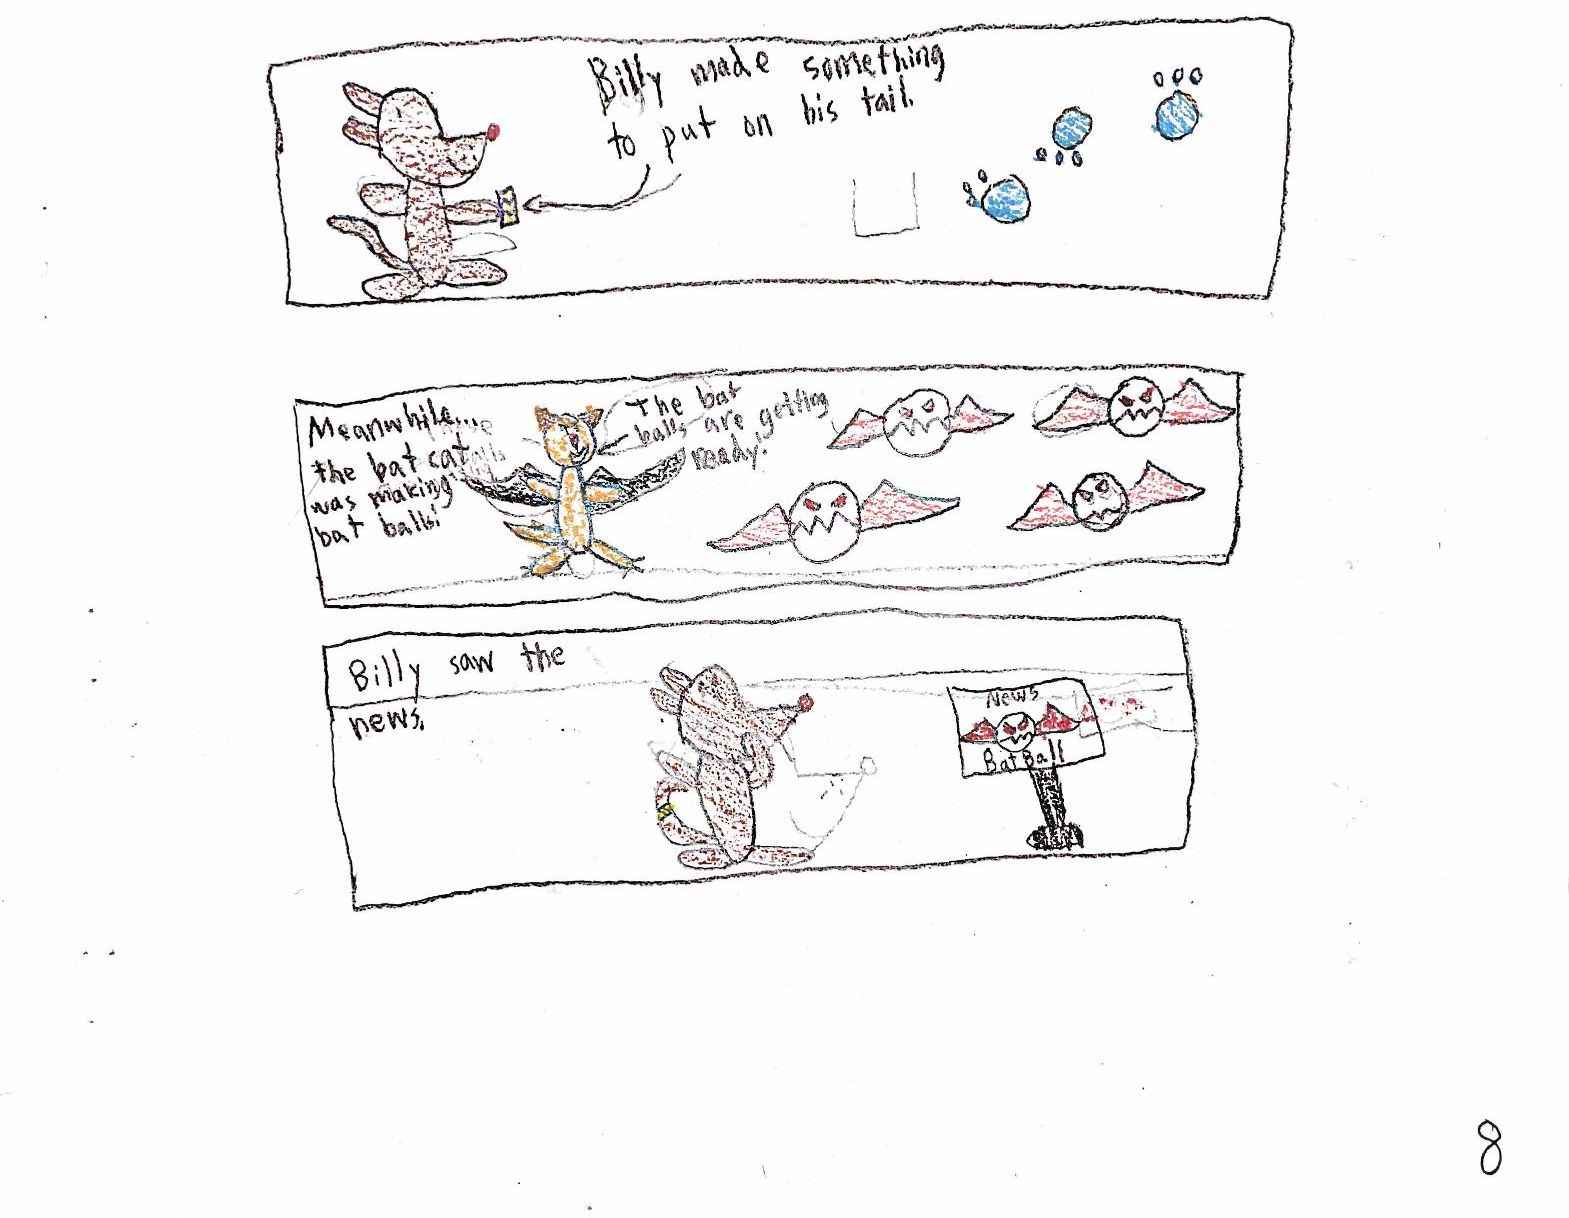 Billy made something
to put on his tail.
Meanwhile...
the bat cat
was making
bat balls!
The bat
balls are getting
ready!
Billy saw the
news.
News
BatBall
8